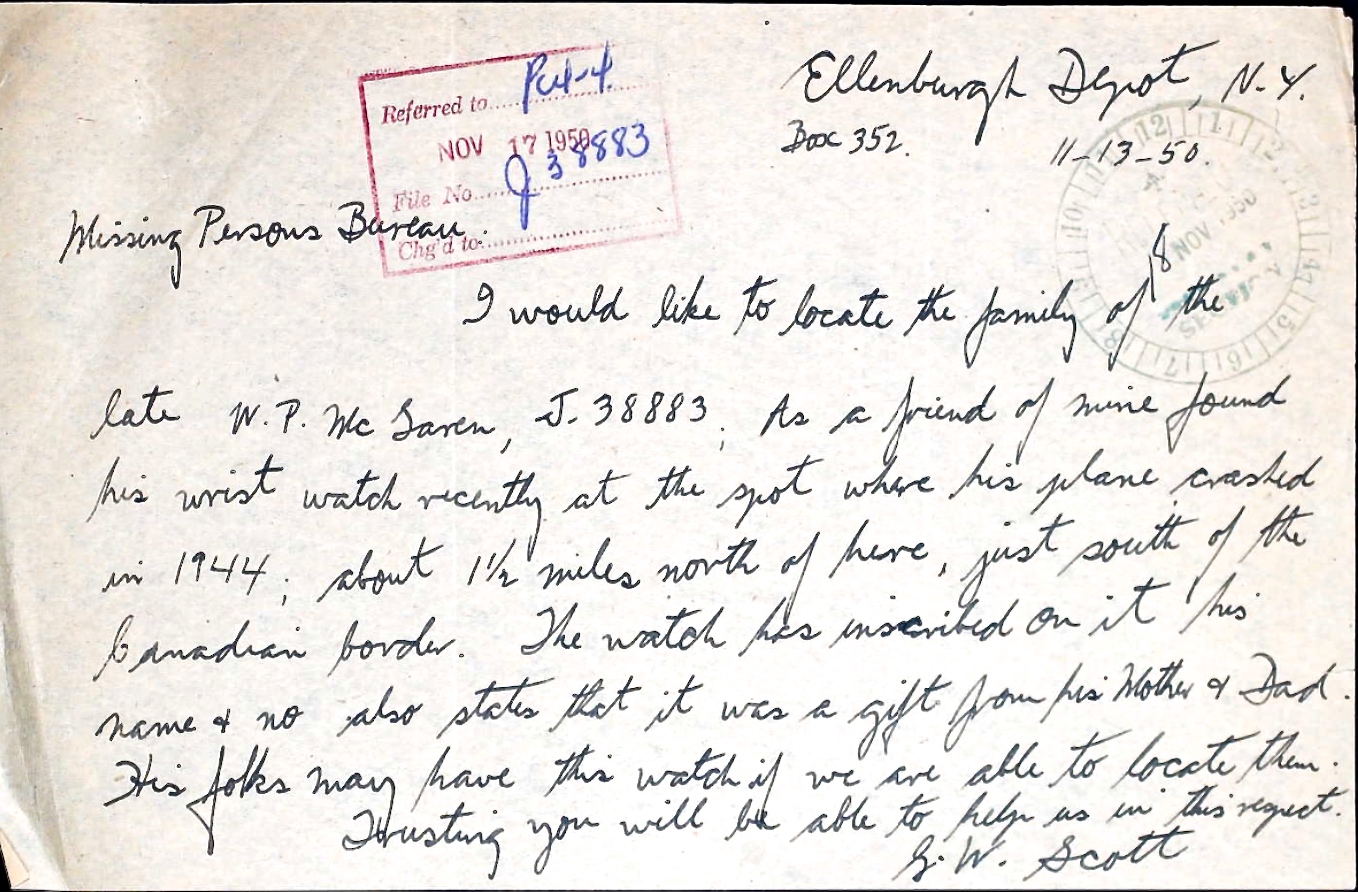 Ellenburgh Depot, N.Y.
Box 352.
11-13-50.
Referred to
NOV 17 1950
File No J 38883
Chg'd to
NOV 1950
Missing Persons Bureau.
8
I would like to locate the family of the
late W. P. McLaren, J. 38883. As a friend of mine found
his wrist watch recently at the spot where his plane crashed
in 1944, about 1½ miles north of here, just south of the
Canadian border. The watch has inscribed on it his
name & no also states that it was a gift from his Mother & Dad.
His folks may have this watch if we are able to locate them.
Trusting you will be able to help us in this respect.
G. W. Scott